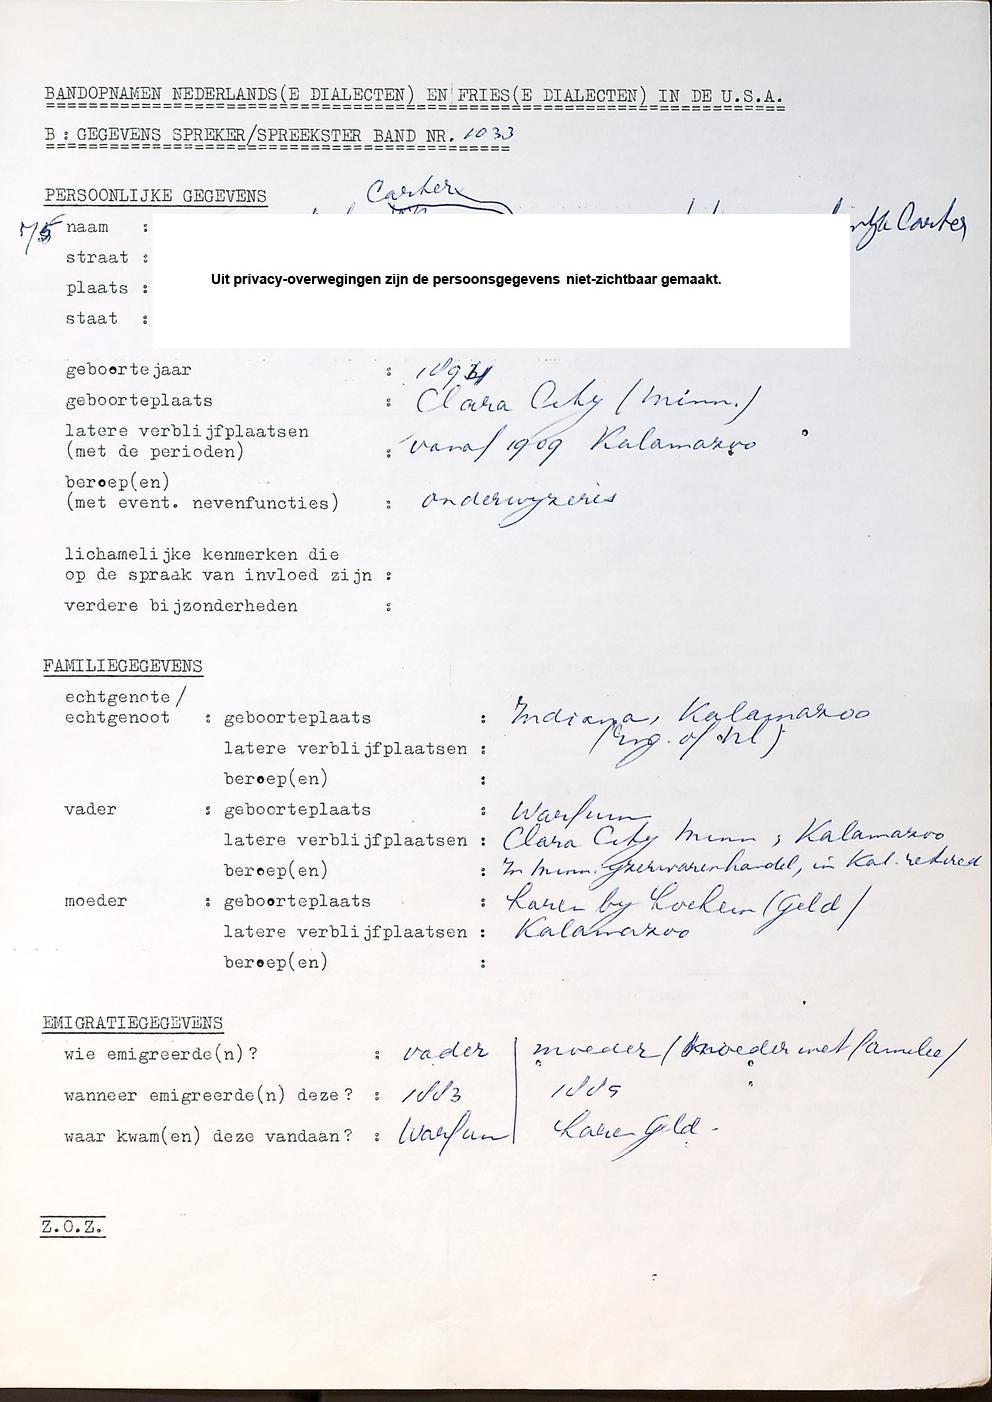 BANDOPNAMEN NEDERLANDS(E DIALECTEN) EN FRIES(E DIALECTEN) IN DE U.S.A.
B : GEGEVENS SPREKER/SPREEKSTER BAND NR. 1033
PERSOONLIJKE GEGEVENS
Carter
naam : Carter
straat :
Uit privacy-overwegingen zijn de persoonsgegevens niet-zichtbaar gemaakt.
plaats :
staat :
geboortejaar :
geboorteplaats : Clara City (Minn.)
latere verblijfplaatsen
(met de perioden) : vanaf 1909 Kalamazoo
beroep(en)
(met event. nevenfuncties) : onderwyzeris
lichamelijke kenmerken die
op de spraak van invloed zijn :
verdere bijzonderheden :
FAMILIEGEGEVENS
echtgenote/
echtgenoot : geboorteplaats : Indiana, Kalamazoo
latere verblijfplaatsen :
beroep(en) :
vader : geboorteplaats : Warfum
latere verblijfplaatsen : Clara City Minn ; Kalamazoo
beroep(en) : In Minn. Yzerwarenhandel, in Kal. retired
moeder : geboorteplaats : Laren by Lochem (Geld)
latere verblijfplaatsen : Kalamazoo
beroep(en) :
EMIGRATIEGEGEVENS
wie emigreerde(n)? : vader | moeder (moeder met familie)
wanneer emigreerde(n) deze? : 1883 | 1885
waar kwam(en) deze vandaan? : Warfum | Laren Geld.
Z.O.Z.